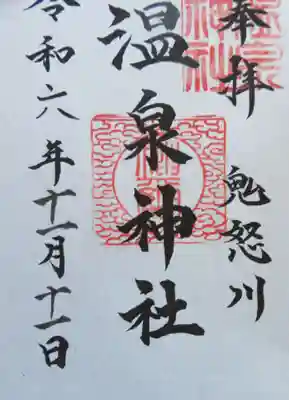 奉拝 鬼怒川
温泉神社
令和六年十一月十一日